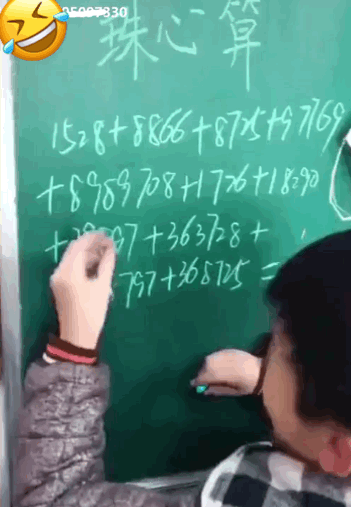 95097330
珠心算
1528+8866+8725+97769
+8989708+1726+18290
+363728+
797+368725=